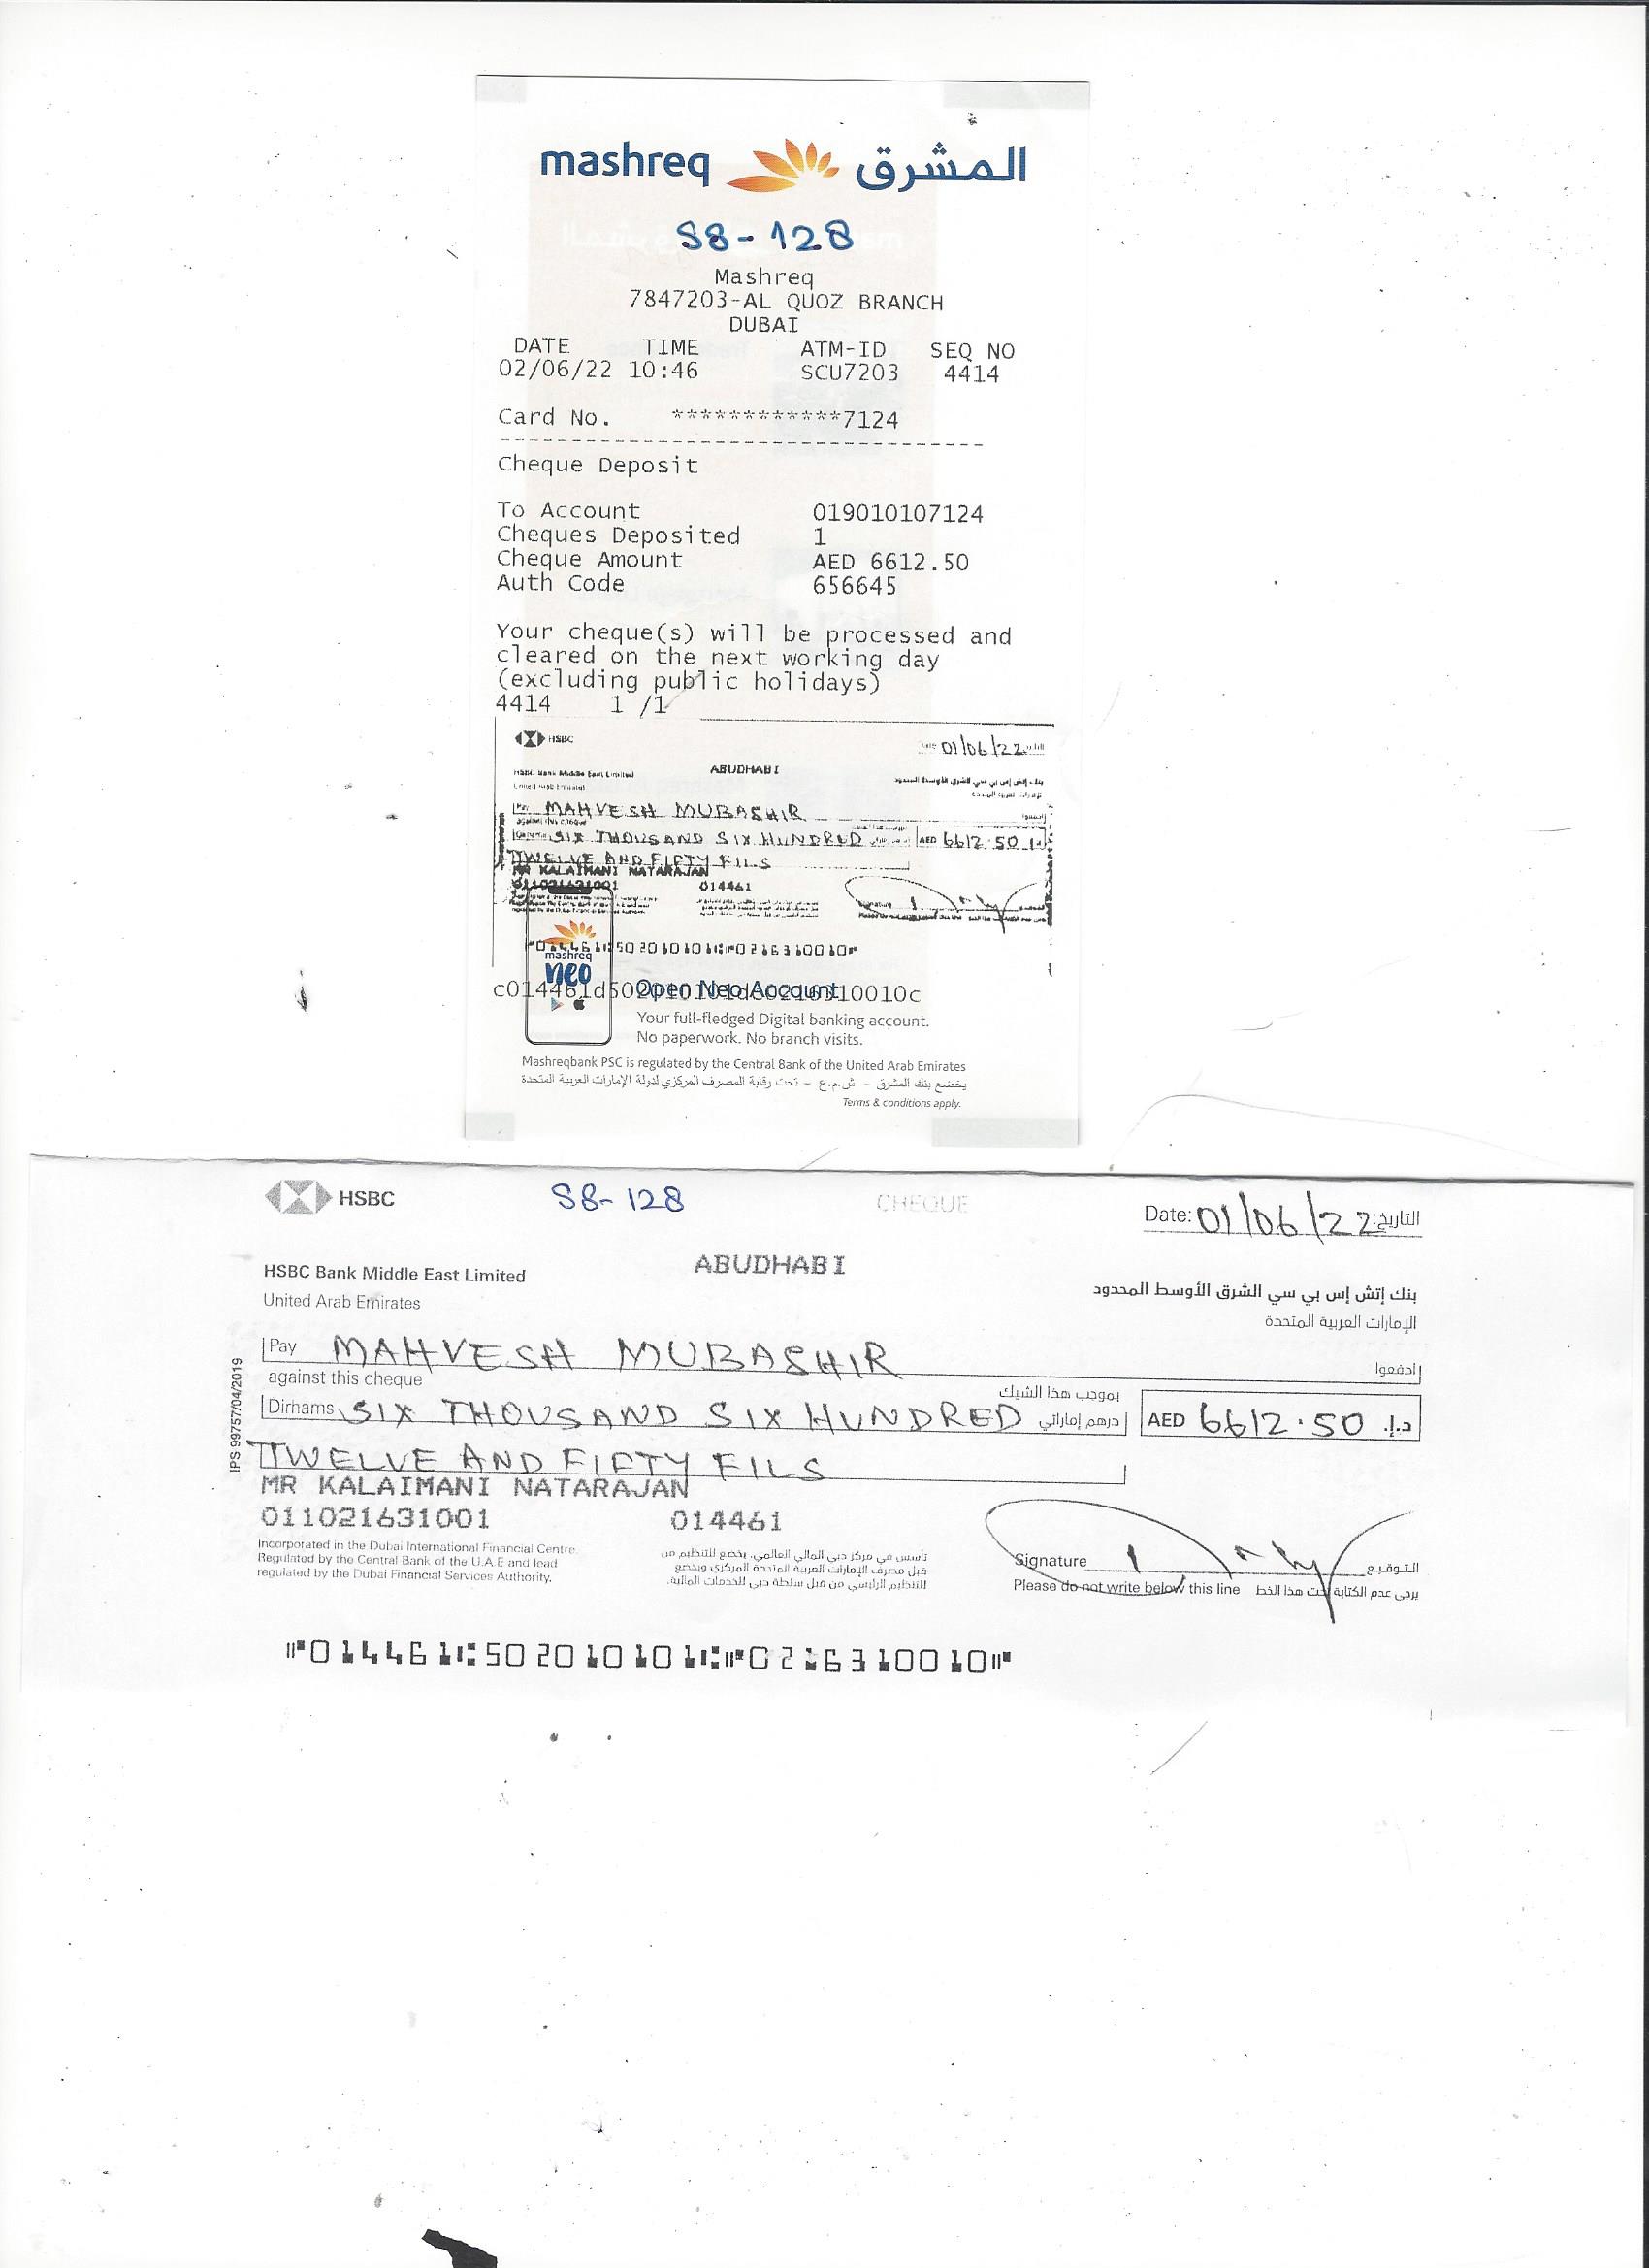 mashreq المشرق
S8-128
Mashreq
7847203-AL QUOZ BRANCH
DUBAI
DATE TIME ATM-ID SEQ NO
02/06/22 10:46 SCU7203 4414
Card No. ************7124
Cheque Deposit
To Account 019010107124
Cheques Deposited 1
Cheque Amount AED 6612.50
Auth Code 656645
Your cheque(s) will be processed and
cleared on the next working day
(excluding public holidays)
4414 1 /1
HSBC 01/06/22
HSBC Bank Middle East Limited ABUDHABI بنك إتش إس بي سي الشرق الأوسط المحدود
United Arab Emirates الإمارات العربية المتحدة
Pay MAHVESH MUBASHIR
against this cheque
SIX THOUSAND SIX HUNDRED AED 6612.50
TWELVE AND FIFTY FILS
MR KALAIMANI NATARAJAN
011021631001 014461
Signature
014461 502010101 0216310010
mashreq
neo
c014461d502010101dc0216310010c
Open Neo Account
Your full-fledged Digital banking account.
No paperwork. No branch visits.
Mashreqbank PSC is regulated by the Central Bank of the United Arab Emirates
يخضع بنك المشرق – ش.م.ع – تحت رقابة المصرف المركزي لدولة الإمارات العربية المتحدة
Terms & conditions apply.
HSBC S8-128 CHEQUE Date: 01/06/22 التاريخ:
HSBC Bank Middle East Limited ABUDHABI بنك إتش إس بي سي الشرق الأوسط المحدود
United Arab Emirates الإمارات العربية المتحدة
Pay MAHVESH MUBASHIR ادفعوا
against this cheque بموجب هذا الشيك
Dirhams SIX THOUSAND SIX HUNDRED درهم إماراتي AED 6612.50 د.إ.
TWELVE AND FIFTY FILS
IPS 99757/04/2019
MR KALAIMANI NATARAJAN
011021631001 014461
Incorporated in the Dubai International Financial Centre.
Regulated by the Central Bank of the U.A.E and lead
regulated by the Dubai Financial Services Authority.
تأسس في مركز دبي المالي العالمي. يخضع للتنظيم من
قبل مصرف الإمارات العربية المتحدة المركزي ويخضع
للتنظيم الرئيسي من قبل سلطة دبي للخدمات المالية.
Signature التوقيع
Please do not write below this line يرجى عدم الكتابة تحت هذا الخط
014461 502010101 0216310010